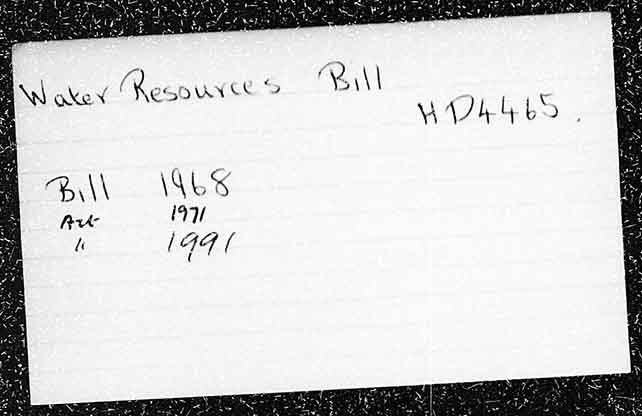 Water Resources Bill
HD4465.
Bill 1968
Act 1971
" 1991